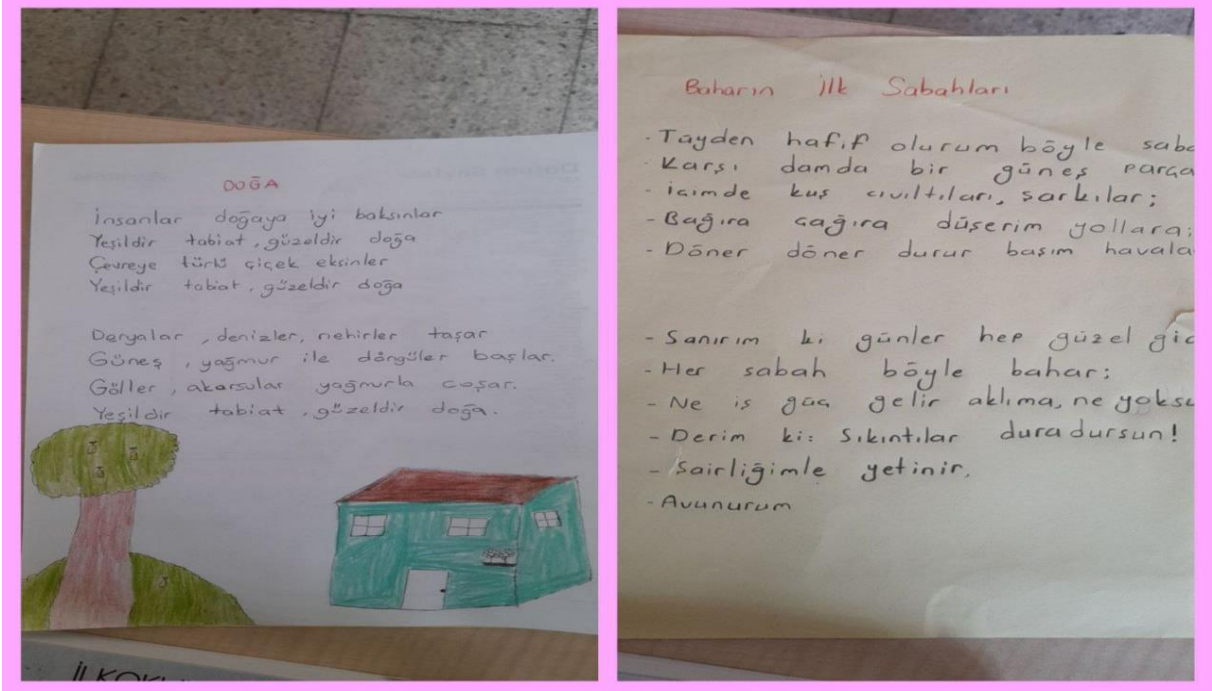 DOĞA
İnsanlar doğaya iyi baksınlar
Yeşildir tabiat, güzeldir doğa
Çevreye türlü çiçek eksinler
Yeşildir tabiat, güzeldir doğa
Deryalar, denizler, nehirler taşar
Güneş, yağmur ile döngüler başlar.
Göller, akarsular yağmurla coşar.
Yeşildir tabiat, güzeldir doğa.
Baharın İlk Sabahları
- Tüyden hafif olurum böyle
- Karşı damda bir güneş
- İçimde kuş cıvıltıları, şarkılar;
- Bağıra çağıra düşerim yollara;
- Döner döner durur başım
- Sanırım ki günler hep güzel
- Her sabah böyle bahar;
- Ne iş güç gelir aklıma, ne
- Derim ki: Sıkıntılar duradursun!
- Şairliğimle yetinir,
- Avunurum